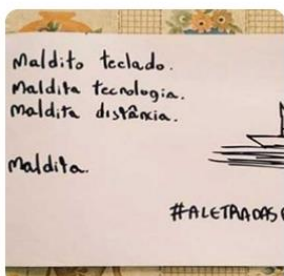 Maldito teclado.
Maldita tecnologia.
Maldita distância.
Maldita.